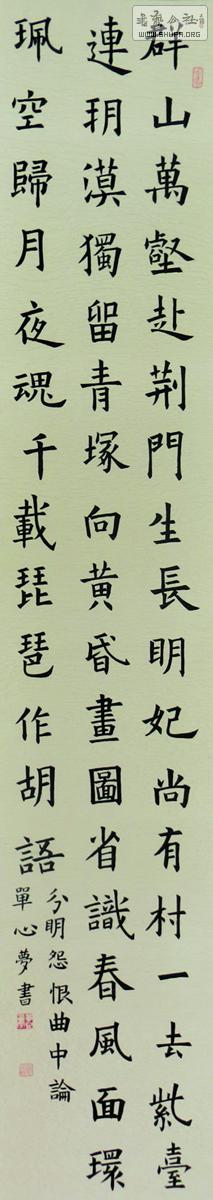 群山萬壑赴荊門生長明妃尚有村一去紫臺
連玥漠獨留青塚向黃昏畫圖省識春風面環
珮空歸月夜魂千載琵琶作胡語
分明怨恨曲中論
單心夢書
WWW.SHUFA.ORG